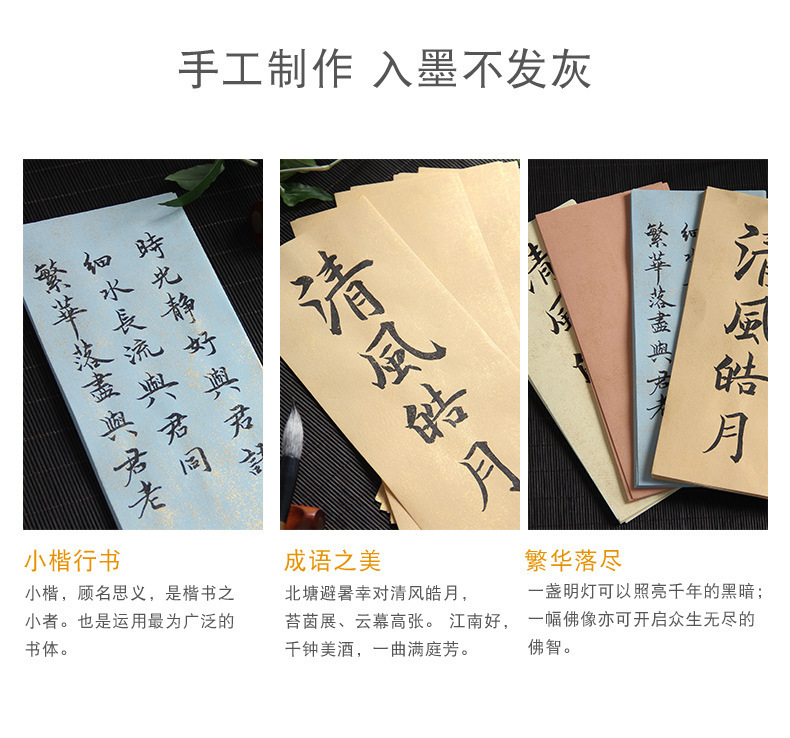 手工制作 入墨不发灰
時光靜好與君語
細水長流與君同
繁華落盡與君老
清風皓月
清風
繁華落盡與君老
細水
清風皓月
小楷行书
小楷，顾名思义，是楷书之
小者。也是运用最为广泛的
书体。
成语之美
北塘避暑幸对清风皓月，
苔茵展、云幕高张。 江南好，
千钟美酒，一曲满庭芳。
繁华落尽
一盏明灯可以照亮千年的黑暗；
一幅佛像亦可开启众生无尽的
佛智。